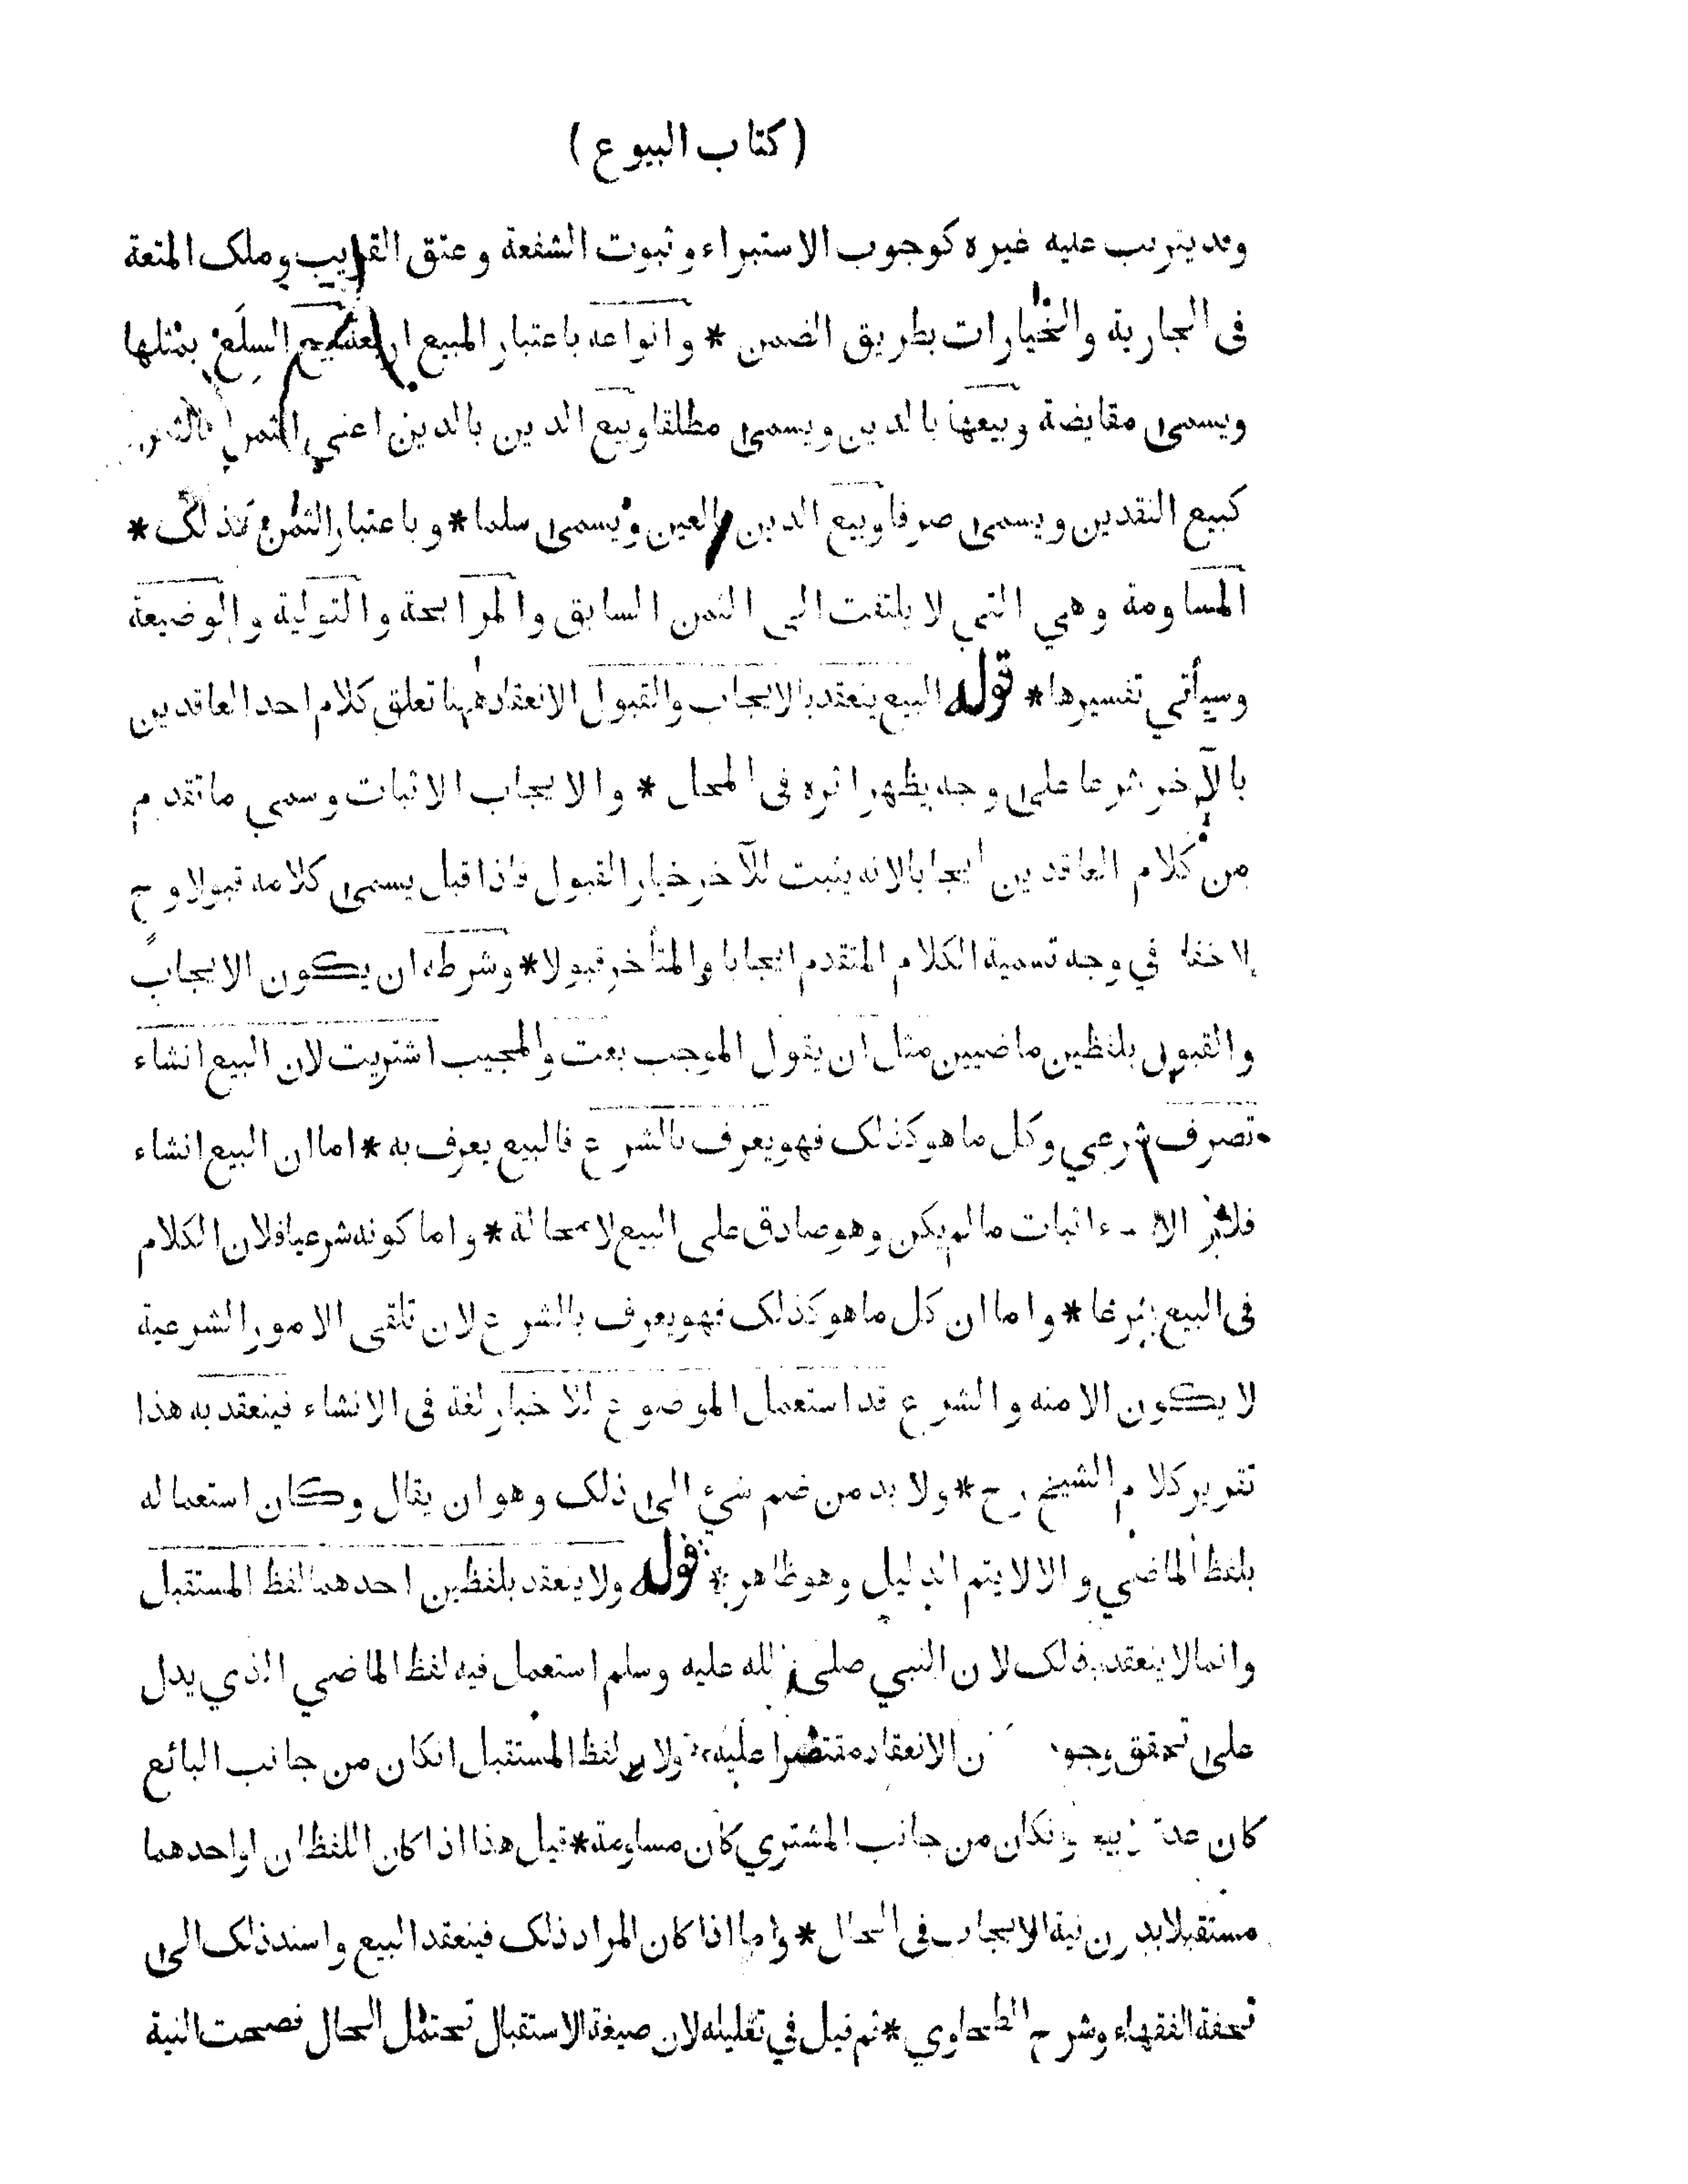 (كتاب البيوع)
وقد يترتب عليه غيره كوجوب الاستبراء وثبوت الشفعة وعتق القريب وملك المتعة
فى الجارية والخيارات بطريق الضمن * وانواعه باعتبار المبيع اربعة بيع السلع بمثلها
ويسمى مقايضة وبيعها بالدين ويسمى مطلقا وبيع الدين بالدين اعني الثمن بالثمن
كبيع النقدين ويسمى صرفا وبيع الدين بالعين ويسمى سلما * وباعتبار الثمن كذلك *
المساومة وهي التي لا يلتفت الى الثمن السابق والمرابحة والتولية والوضيعة
وسيأتي تفسيرها * قوله البيع ينعقد بالايجاب والقبول الانعقاد ههنا تعلق كلام احد العاقدين
بالآخر شرعا على وجه يظهر اثره فى المحل * والايجاب الاثبات وسمي ما تقدم
من كلام العاقدين ايجابا لانه يثبت للآخر خيار القبول فاذا قبل يسمى كلامه قبولا وح
لا خفا في وجه تسمية الكلام المتقدم ايجابا والمتأخر قبولا * وشرطه ان يكون الايجاب
والقبول بلفظين ماضيين مثل ان يقول الموجب بعت والمجيب اشتريت لان البيع انشاء
تصرف شرعي وكل ما هو كذلك فهو يعرف بالشرع فالبيع يعرف به * اما ان البيع انشاء
الا ء اثبات ما لم يكن وهو صادق على البيع لا محالة * واما كونه شرعيا فلان الكلام
فى البيع شرعا * واما ان كل ما هو كذلك فهو يعرف بالشرع لان تلقى الامور الشرعية
لا يكون الا منه والشرع قد استعمل الموضوع للاخبار لغة فى الانشاء فينعقد به هذا
تقرير كلام الشيخ رح * ولا بد من ضم شئ الى ذلك وهو ان يقال وكان استعماله
بلفظ الماضي والا لا يتم الدليل وهو ظاهر * قوله ولا ينعقد بلفظين احدهما لفظ المستقبل
وانما لا ينعقد بذلك لان النبي صلى الله عليه وسلم استعمل فيه لفظ الماضي الذي يدل
على تحقق الانعقاد مقتصرا عليه * لفظ المستقبل ان كان من جانب البائع
كان وان كان من جانب المشتري كان مساومة * قيل هذا اذا كان اللفظان او احدهما
مستقبلا بدون نية الايجاب فى الحال * واما اذا كان المراد ذلك فينعقد البيع واسند ذلك الى
تحفة الفقهاء وشرح الطحاوي * ثم قيل في تعليله لان صيغة الاستقبال تحتمل الحال فصحت النية